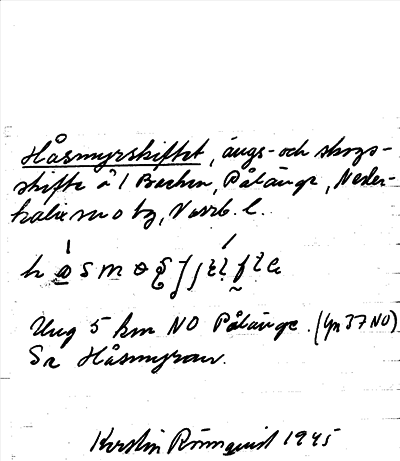 Håsmyrskiftet, ängs- och skogs-
skifte å 1 Backen, Pålänge, Neder-
kalix sn o tg, Norrb. l.
Ung 5 km NO Pålänge. (Yp 37 NO)
Se Håsmyran.
Kerstin Rönnquist 1945